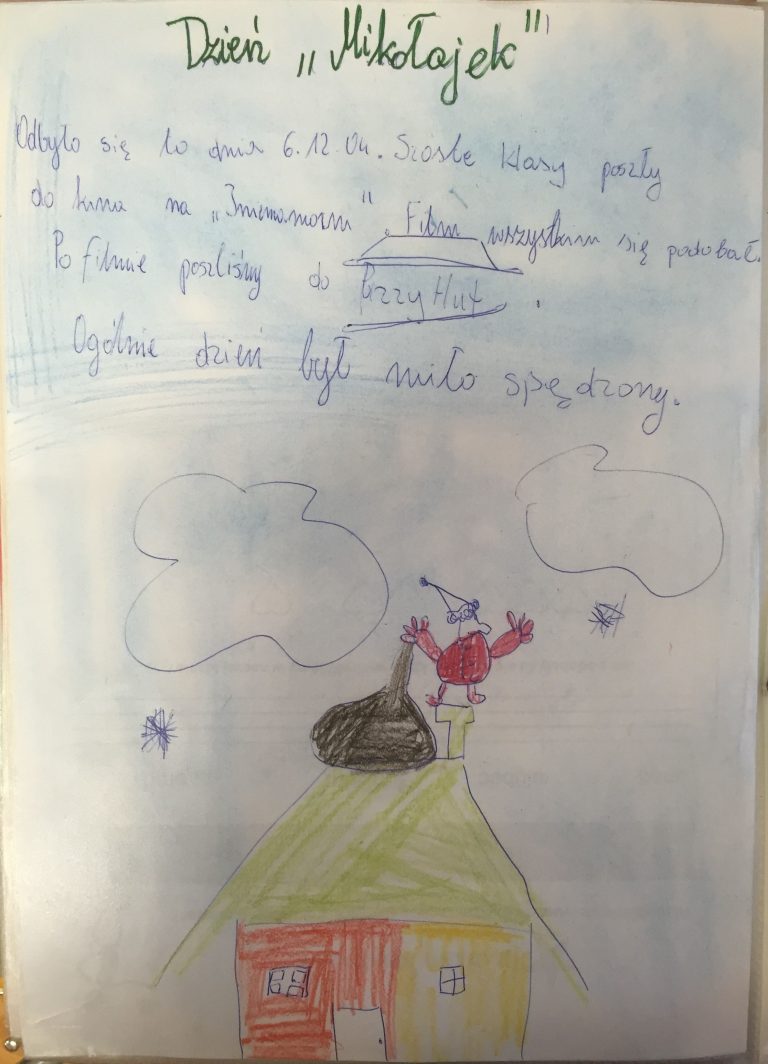 Dzień „Mikołajek”
Odbyło się to dnia 6.12.04. Szóste klasy poszły
do kina na „Iniemamocni”. Film wszystkim się podobał.
Po filmie poszliśmy do Pizzy Hut.
Ogólnie dzień był miło spędzony.